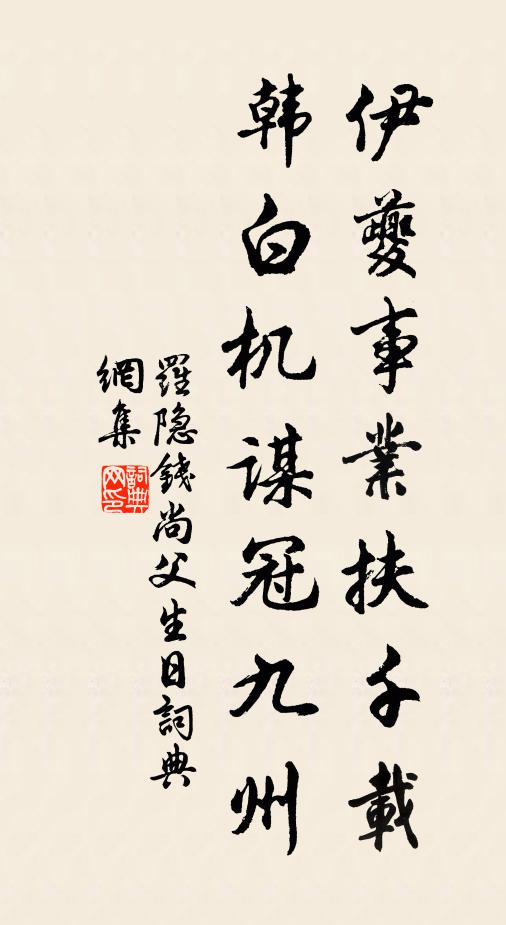 伊夔事業扶千載
韩白机谋冠九州
羅隐錢尚父生日詞典
網集
詞典
网印